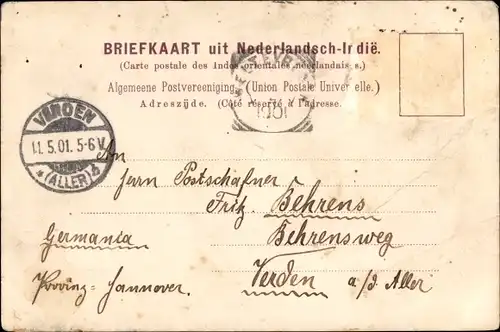 BRIEFKAART uit Nederlandsch-Indië.
(Carte postale des Indes orientales néerlandaises.)
Algemeene Postvereeniging. (Union Postale Universelle.)
Adreszijde. (Côté réservé à l'adresse.)
1901
VERDEN
11.5.01.5-6V.
*(ALLER)b
An
Herrn Postschaffner
Fritz Behrens
Germania Behrensweg
Provinz-Hannover. Verden a/d. Aller